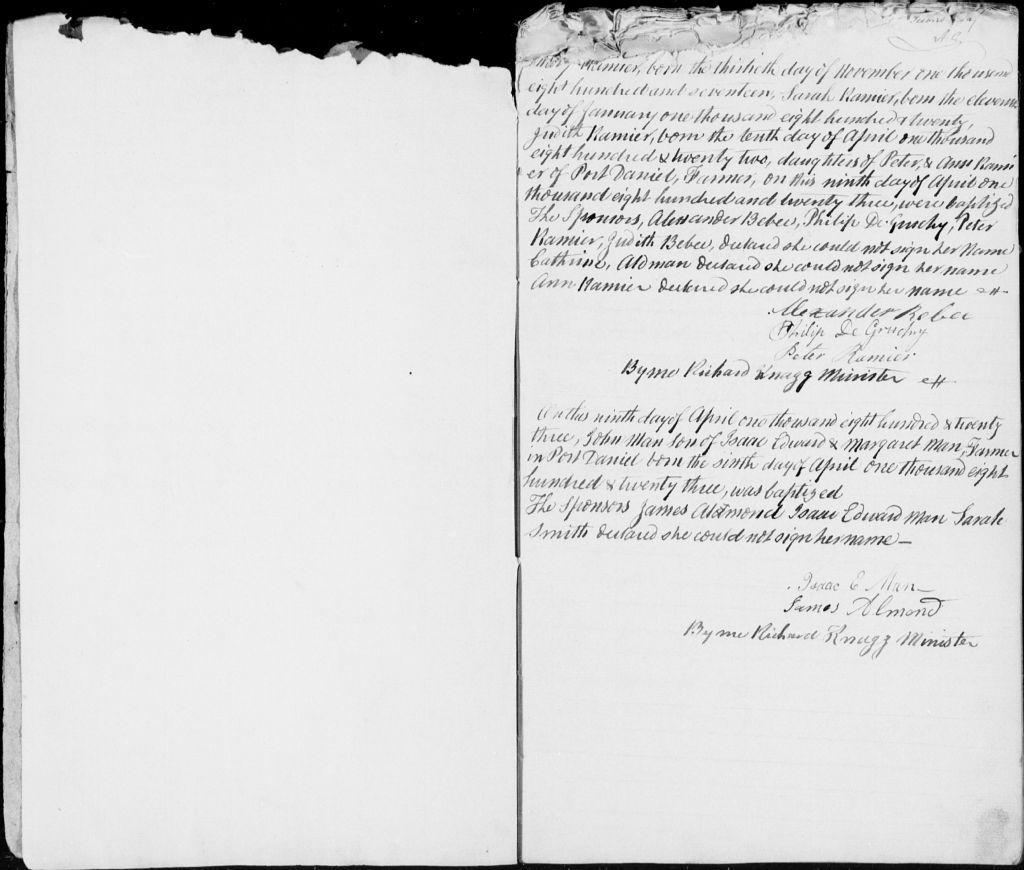 Second Page
Mary Ramier, born the thirtieth day of November one thousand
eight hundred and seventeen, Sarah Ramier, born the eleventh
day of January one thousand eight hundred & twenty,
Judith Ramier, born the tenth day of April one thousand
eight hundred & twenty two, daughters of Peter, & Ann Rami
er of Port Daniel, Farmer, on this ninth day of April one
thousand eight hundred and twenty three, were baptized
The Sponsors, Alexander Bebee, Philip De Gruchy, Peter
Ramier, Judith Bebee, declared she could not sign her Name
Cathrine, Aldman declared she could not sign her name
Ann Ramier declared she could not sign her name
Alexander Bebee
Philip De Gruchy
Peter Ramier
By me Richard Knagg Minister
On this ninth day of April one thousand eight hundred & twenty
three, John Man son of Isaac Edward & Margaret Man, Farmer
in Port Daniel born the sixth day of April one thousand eight
hundred & twenty three, was baptized
The Sponsors James Aldmond Isaac Edward Man Sarah
Smith declared she could not sign her name —
Isaac E Man
James Almond
By me Richard Knagg Minister